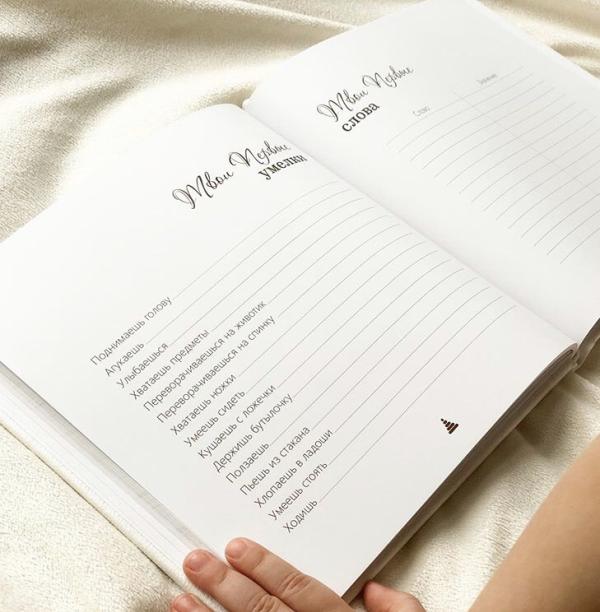 Твои Первые
умелки
Поднимаешь голову
Агукаешь
Улыбаешься
Хватаешь предметы
Переворачиваешься на животик
Переворачиваешься на спинку
Хватаешь ножки
Умеешь сидеть
Кушаешь с ложечки
Держишь бутылочку
Ползаешь
Пьешь из стакана
Хлопаешь в ладоши
Умеешь стоять
Ходишь
Твои Первые
слова
Слово Значение